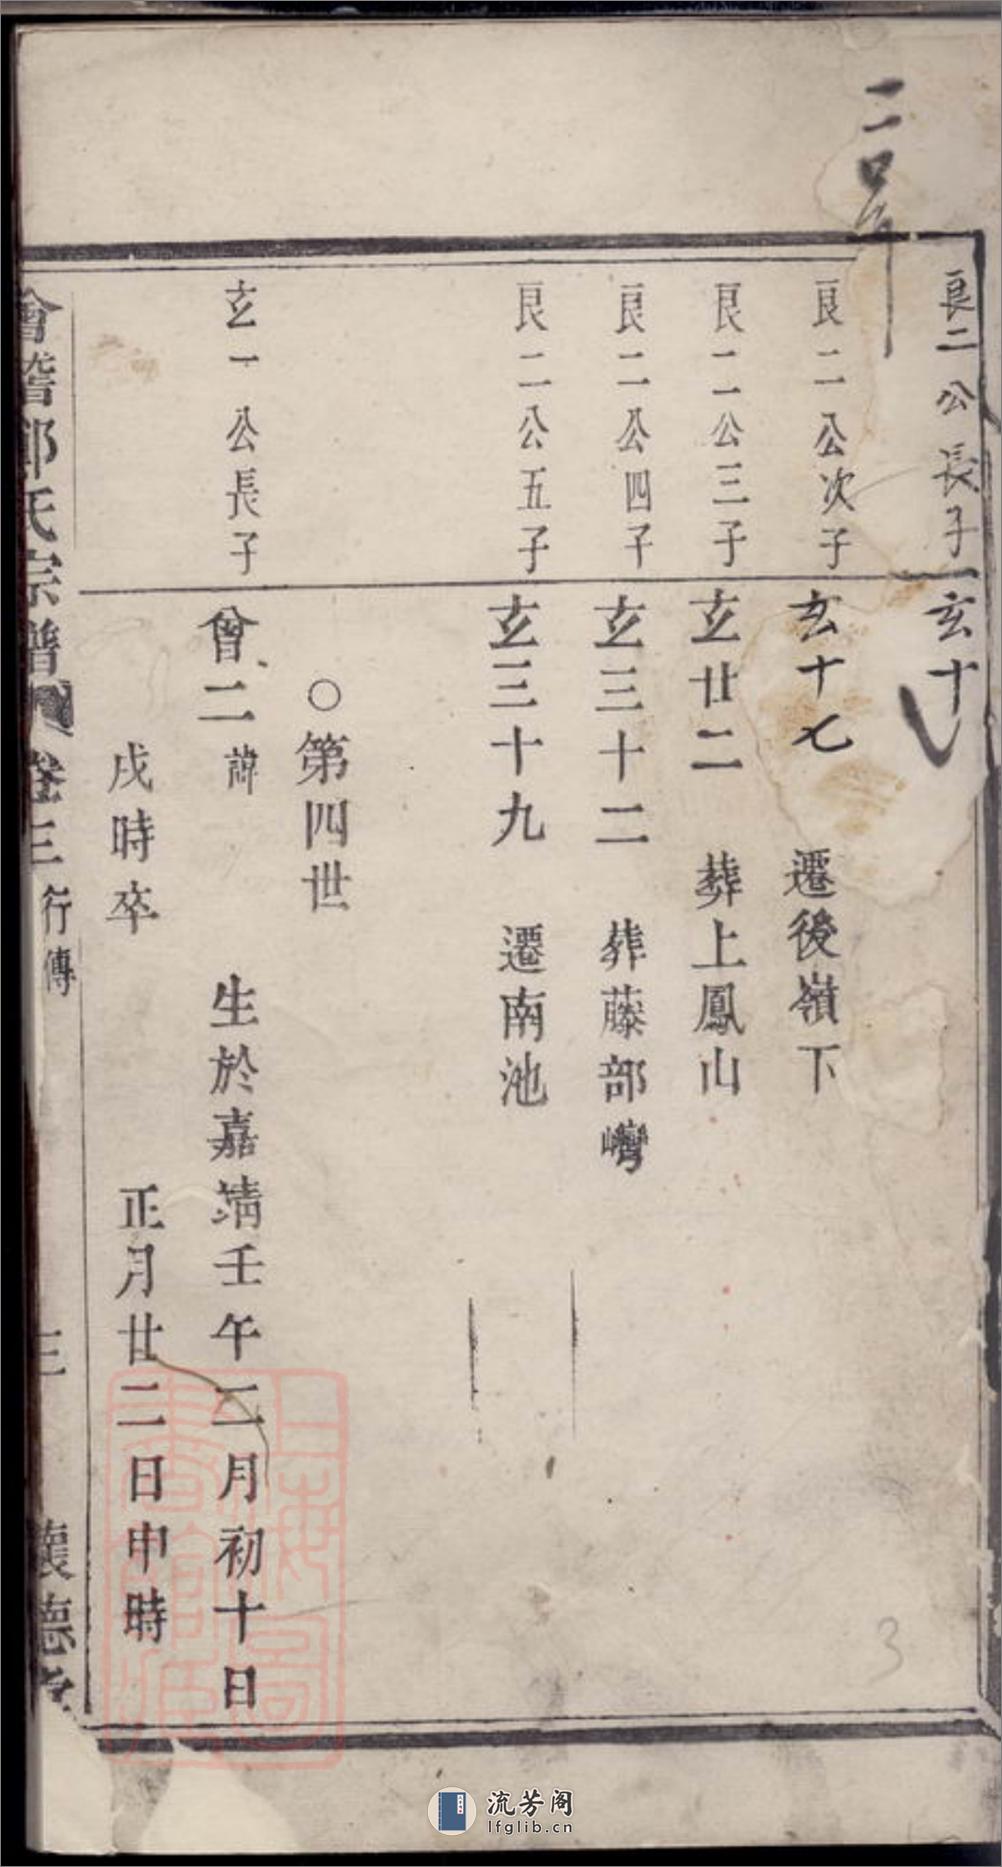 良二公長子
玄十
良二公次子
玄十七 遷後嶺下
良二公三子
玄廿二 葬上鳳山
良二公四子
玄三十二 葬藤部灣
良二公五子
玄三十九 遷南池
○第四世
玄一公長子
曾二諱 生於嘉靖壬午二月初十日
戌時卒 正月廿二日申時
會稽 氏宗譜 卷三 行傳 三 懷德
上海圖書館藏
3
流芳阁
lfglib.cn